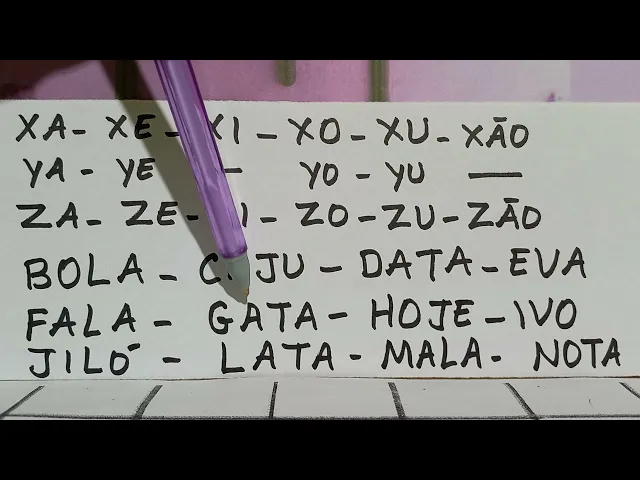 XA - XE - XI - XO - XU - XÃO
YA - YE - YO - YU —
ZA - ZE - ZO - ZU - ZÃO
BOLA - DATA - EVA
FALA - GATA - HOJE - IVO
JILÓ - LATA - MALA - NOTA